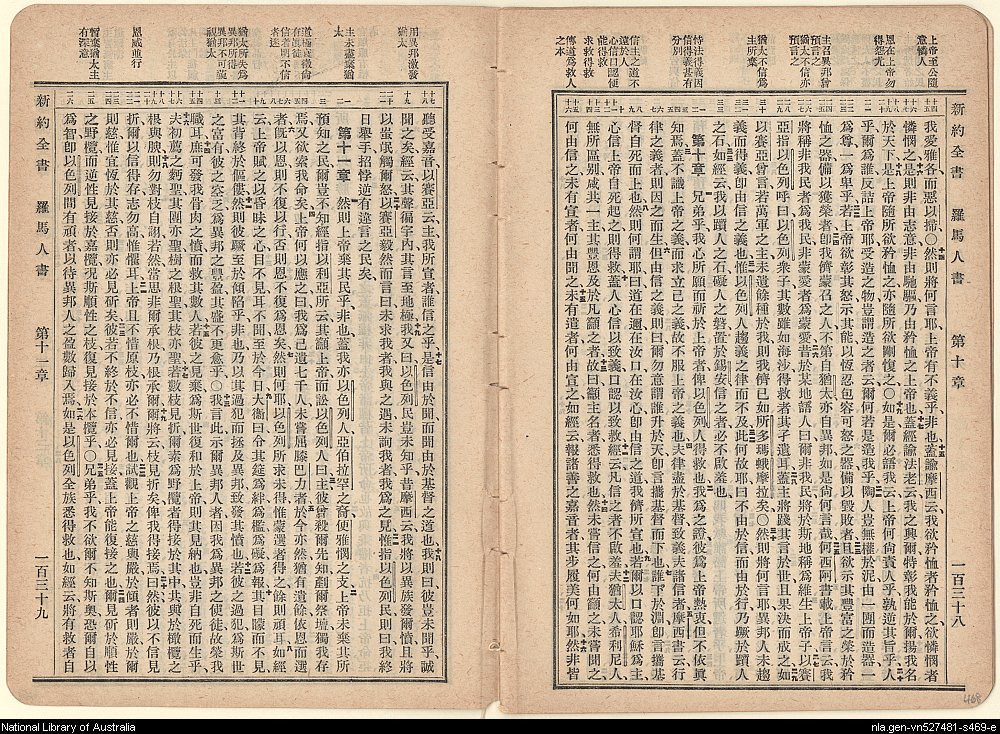 新約全書 羅馬人書 第十章 一百三十八
上帝至公隨
意憐人
恩在上帝勿
得怨尤
主召異邦曾
預言之
猶太不信亦
預言之
猶太不信為
主所棄
恃法得義因
信得義甚有
分別
信主之道不
遠於人
心信口認便
能得救
求救得救
傳道為救人
之本
我愛雅各而惡以掃○然則將何言耶上帝有不義乎非也蓋諭摩西云我欲矜恤者矜恤之欲憐憫者
憐憫之是則非由志意非由馳驅乃由矜恤之上帝也蓋經諭法老云我之興爾特彰我能於爾揚我名
於天下是上帝隨所欲矜恤之亦隨所欲剛愎之○如是爾必語我云上帝何尚責人乎孰逆其旨乎人
乎爾為誰反詰上帝耶受造之物豈謂造之者云爾何若是造我乎陶人豈無權於泥由一團而造器一
為尊一為卑乎若上帝欲彰其怒示其能以恆忍包容可怒之器備以毀敗者且欲示其豐富之榮於矜
恤之器備以獲榮者即我儕蒙召之人不第自猶太亦自異邦如是尚何言哉何西阿書載上帝云
將稱非我民者為我民非蒙愛者為蒙愛昔於某地語人曰爾非我民將於斯地稱為維生上帝子以賽
亞指以色列呼曰以色列衆子其數雖如海沙得救者其孑遺耳蓋主將踐其言於世且果決而成之如
以賽亞曾言若萬軍之主未遺餘種於我則我儕已如所多瑪蛾摩拉矣○然則將何言乎異邦人未趨
義而得義即由信之義也惟以色列人趨義之律而不及此何故耶曰不由於信而由於行乃蹶於躓人
之石如經云我以躓人之石礙人之磐置於錫安信之者必不啟羞也
第十章 兄弟乎我中心所願而祈於上帝者俾以色列人得救也我為之證彼為上帝熱衷但不依眞
知焉蓋不識上帝之義而求立己之義故不服上帝之義也夫律盡於基督致義夫諸信者摩西書云行
律之義者則因之而生但由信之義則曰爾勿意謂誰升於天即言攜基督而下也誰下於淵即言攜基
督自死而上也然則何謂耶曰道在邇在汝口在汝心即由信之道我儕所宣也若爾以口認耶穌為主
心信上帝由死起之則得救蓋人心信以致義口認以得救經云凡信之者不啟羞夫猶太人希利尼人
無所區別咸共一主其豐恩及於凡籲之者故曰籲主名者悉得救也然未嘗信之何由籲之未嘗聞之
何由信之未有宣者何由聞之未有遣者何由宣之如經云報諸善之嘉音者其步履美何如耶然非皆
新約全書 羅馬人書 第十一章 一百三十九
用異邦激發
猶太
主未盡棄猶
太
猶太所失為
異邦所得
異邦不可藐
視猶太
恩威並行
暫棄猶太主
有深意
聽受嘉音以賽亞云主我所宣者誰信之乎是信由於聞而聞由於基督之道也我則曰彼豈未聞乎誠
聞之矣經云其聲徧宇內其言至地極我又曰以色列民豈未知乎昔摩西云我將以異族發爾憤且將
以蚩氓觸爾怒以賽亞毅然而言曰未求我者我與之遇未詢我者我為之見惟指以色列民則曰我終
日舉手招悖逆有違言之民矣
第十一章 然則上帝棄其民乎非也蓋我亦以色列人亞伯拉罕之裔便雅憫之支上帝未棄其所
預知之民爾豈不知經指以利亞所云其籲上帝而訟以色列人曰主彼曾殺爾先知剷爾祭壇獨我存
焉又欲索我命矣上帝何以應之曰我為己遺七千人未嘗屈膝巴力者於今亦然猶有遺餘依恩而選
者旣以恩則不復以行否則恩不復為恩矣然則何耶以色列所求未得惟蒙選者得之餘則頑耳如經
云上帝賦之以昏昧之心目不見耳不聞至於今日大衞曰令其筵為絆為檻為礙為報其目矇而不見
其背終於傴僂然則彼蹶至於傾陷乎非也乃以其過犯而拯及異邦致發其憤也若彼之過犯為斯世
之富有彼之空乏為異邦之豐盈其盛不更愈乎○我言此示爾異邦人者因我為異邦之使徒故榮我
職耳庶可發我骨肉之憤而救其數人若彼之見棄為斯世復和於上帝則其見納也豈非自死而生乎
夫初薦之麪聖其團亦聖樹之根聖其枝亦聖若數枝見折爾素為野欖者得接於其中共與於橄欖之
根與腴則勿對枝自詡若然當思非爾承根乃根承爾爾將云枝見折矣俾我得接焉曰然彼以不信見
折爾以信得存志勿高惟懼耳上帝且不惜原枝亦必不惜爾也試觀上帝之慈與嚴於傾者則嚴於爾
則慈惟宜恆於其慈否則亦必見斫矣彼若不終於不信亦必見接蓋上帝能復接之也爾見斫於順性
之野欖而逆性見接於嘉欖況斯順性之枝復見接於本欖乎○兄弟乎我不欲爾不知斯奧恐爾自以
為智即以色列間有頑者以待異邦人之盈數歸入焉如是以色列全族悉得救也如經云將有救者自
468
National Library of Australia
nla.gen-vn527481-s469-e